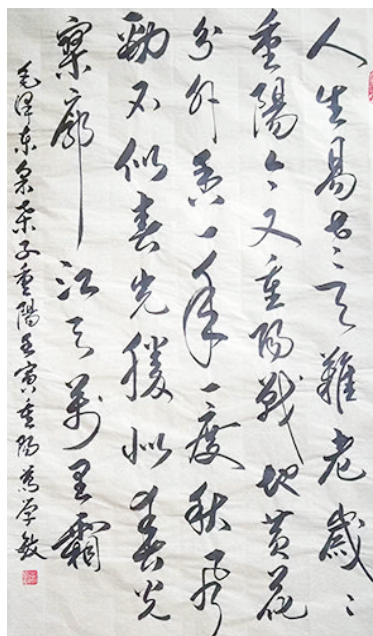 人生易老天難老歲々
重陽今又重陽戰地黃花
分外香一年一度秋風
勁不似春光勝似春光
寥廓江天萬里霜
毛澤东采桑子重陽壬寅重陽学敏